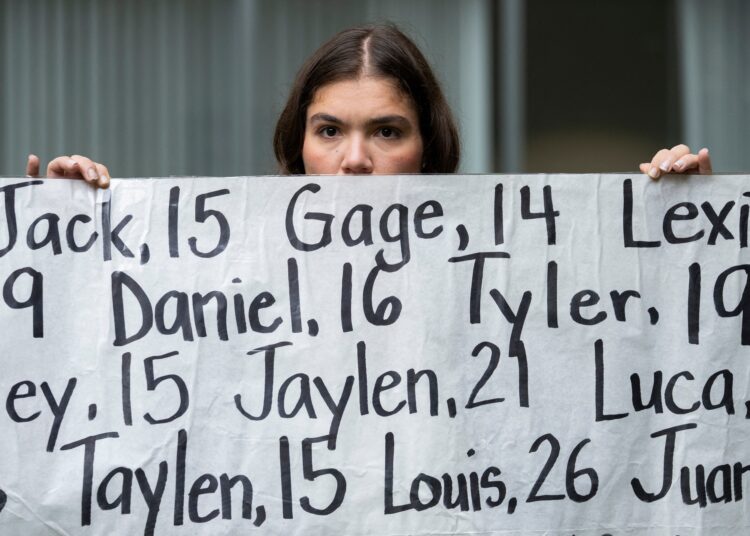 Jack, 15 Gage, 14 Lexi
9 Daniel, 16 Tyler, 19
ey, 15 Jaylen, 21 Luca,
Taylen, 15 Louis, 26 Juan